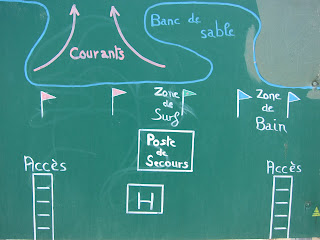 Banc de
sable
Courants
Zone
de
Surf
Zone
de
Bain
Poste
de
Secours
Accès
Accès
H